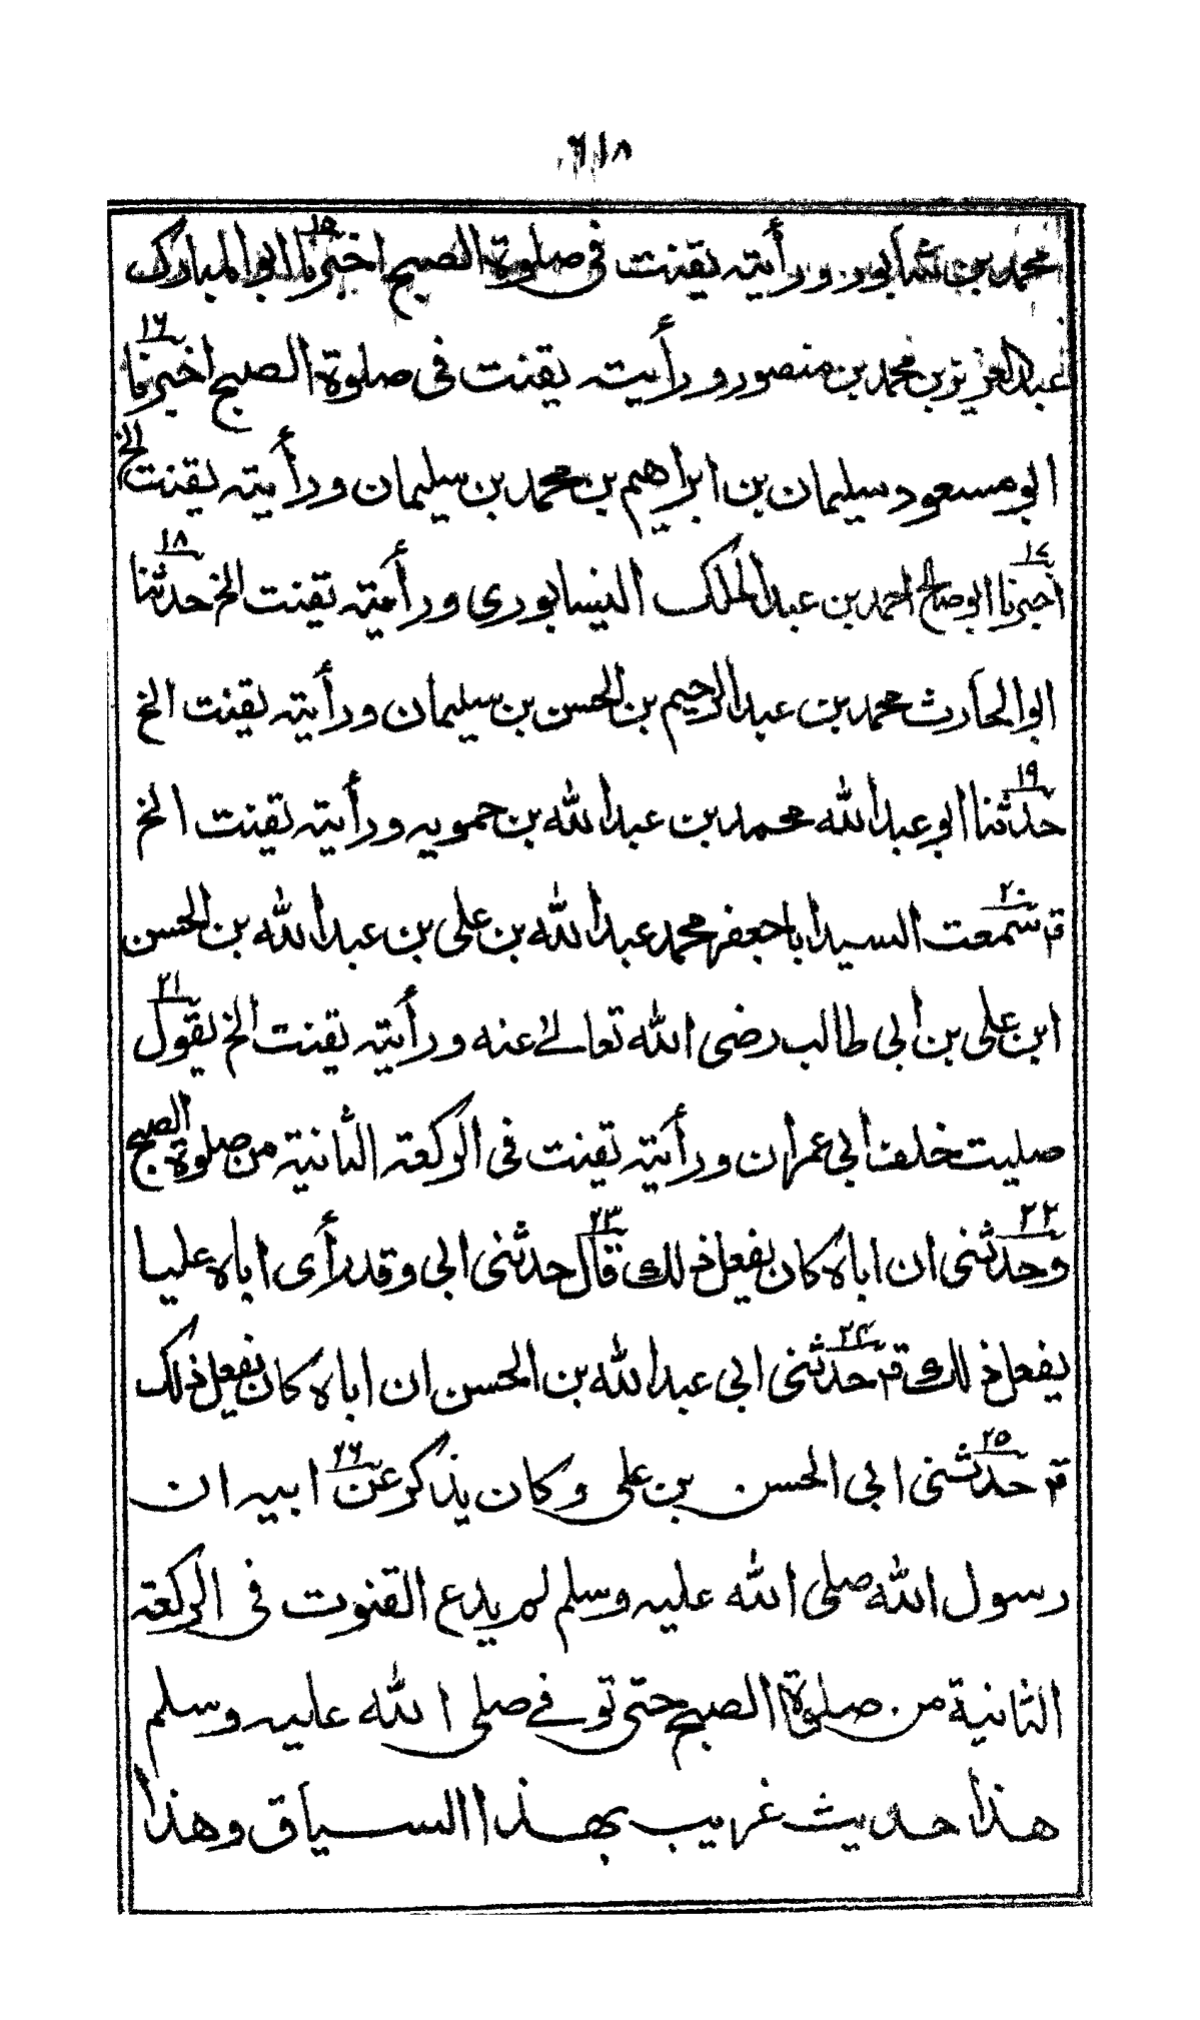 ٦١٨
محمد بن نشابور ورأيته يقنت في صلوة الصبح اخبرنا ١٥ ابو المبارك
عبد العزيز بن محمد بن منصور ورأيته يقنت في صلوة الصبح اخبرنا ١٦
ابو مسعود سليمان بن ابراهيم بن محمد بن سليمان ورأيته يقنت الخ
١٧ اخبرنا ابو صالح احمد بن عبد الملك النيسابوري ورأيته يقنت الخ حدثنا ١٨
ابو الحارث محمد بن عبد الرحيم بن الحسن بن سليمان ورأيته يقنت الخ
١٩ حدثنا ابو عبد الله محمد بن عبد الله بن حمويه ورأيته يقنت الخ
قـ سمعت ٢٠ السيد ابا جعفر محمد عبد الله بن علي بن عبد الله بن الحسن
ابن علي بن ابي طالب رضى الله تعالے عنه ورأيته يقنت الخ يقول ٢١
صليت خلف ابي عمران ورأيته يقنت في الركعة الثانية من صلوة الصبح
وحدثنى ٢٢ ان اباه كان يفعل ذلك قال ٢٣ حدثنى ابي وقد رأى اباه عليا
يفعل ذلك قـ حدثنى ٢٤ ابي عبد الله بن الحسن ان اباه كان يفعل ذلك
قـ حدثنى ٢٥ ابي الحسن بن علي وكان يذكر عن ٢٦ ابيه ان
رسول الله صلى الله عليه وسلم لم يدع القنوت في الركعة
الثانية من صلوة الصبح حتى توفے صلى الله عليه وسلم
هذا حديث غريب بهذا السياق وهذا